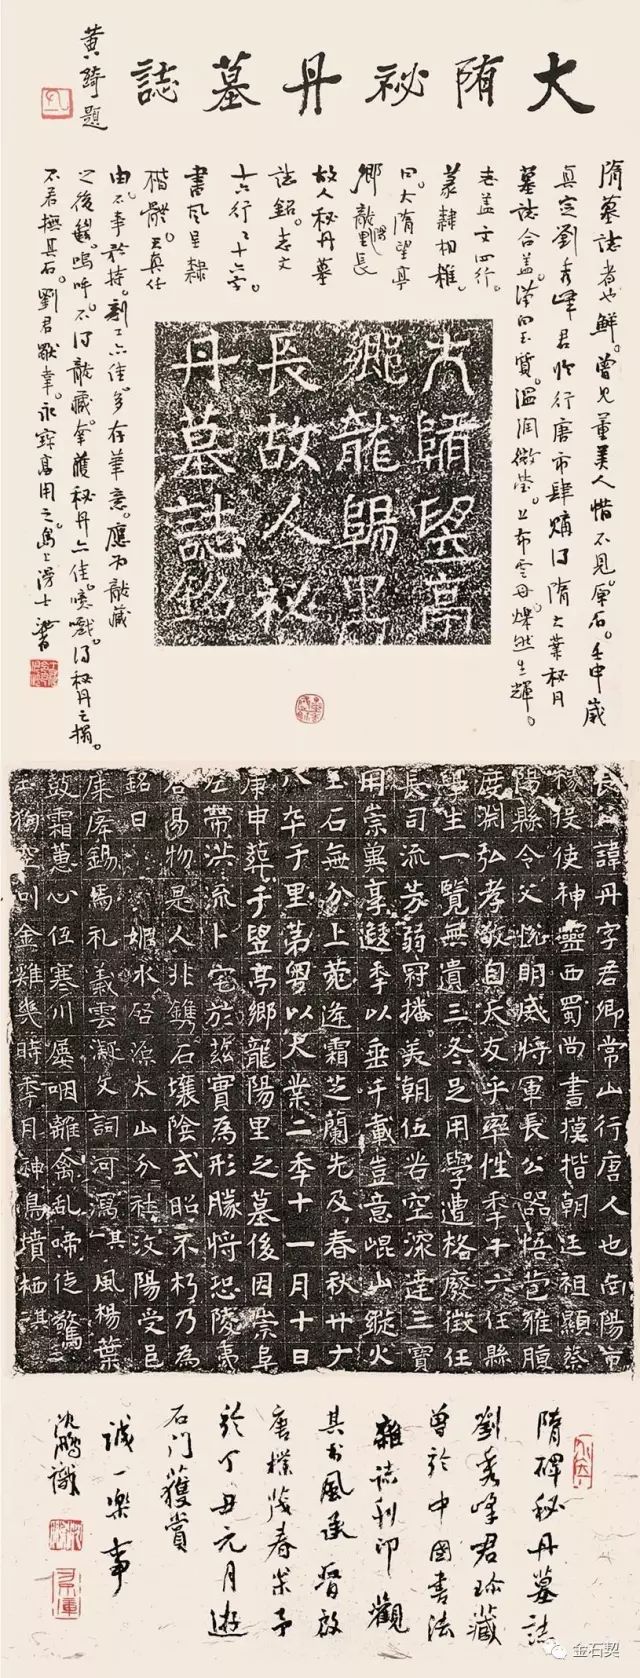 大隋祕丹墓誌
黄绮題
隋墓誌者也鮮。曾見董美人惜不見原石。壬申歲
真定劉秀峰君於行唐市肆購得隋大業秘丹
墓誌合盖。漢白玉質。溫潤微瑩。上布雲母燦然生輝。
志盖文四行。
篆隸相雜。
曰。大隋望亭
鄉龍陽里長
故人秘丹墓
誌銘。志文
十六行行十六字
書風呈隸
楷體。天真任
由。不事矜持。刻工亦佳。多存筆意。
之後。嗚呼。不得龍藏。拿獲秘丹亦佳。噫嘻。得秘丹之搨。
不若撫其石。劉君獻章。永寶高用之。
大隋望亭
鄉龍陽里
長故人祕
丹墓誌銘
長諱丹字君卿常山行唐人也
授使神靈西蜀尚書摸楷朝廷祖顯蔡
陽縣令父悦明威將軍長公器悟苞雅腹
度淵弘孝敬自天友乎率性季十六任縣
學生一覽無遺三冬足用學遭格廢徵任
長司流芳弱冠播美朝伍若空深達三寶
用崇冀享遐季以垂千載豈意崐山縱火
玉石無分上菀逢霜芝蘭先及春秋廿有
八卒于里第粤以大業二季十一月十日
庚申葬于望亭鄉龍陽里之墓後因崇阜
左帶洪流卜宅於兹實為形勝將恐陵夷
谷易物是人非鐫石壤陰式昭不朽乃為
銘曰 媯水啓源太山分社汶陽受邑
庥席錫馬礼義雲凝文詞河瀉其風楊葉
故霜蕙心伍寒川屡咽離禽乱啼徒驚
狗空叫金雞幾時季月神鳥墳栖其
隋碑秘丹墓誌
劉秀峰君珍藏
曾於中國書法
雜誌刊印觀
其書風承晉啟
唐樸茂春容予
於丁丑元月遊
石门獲賞
誠一樂事
沈鵬識
金石契